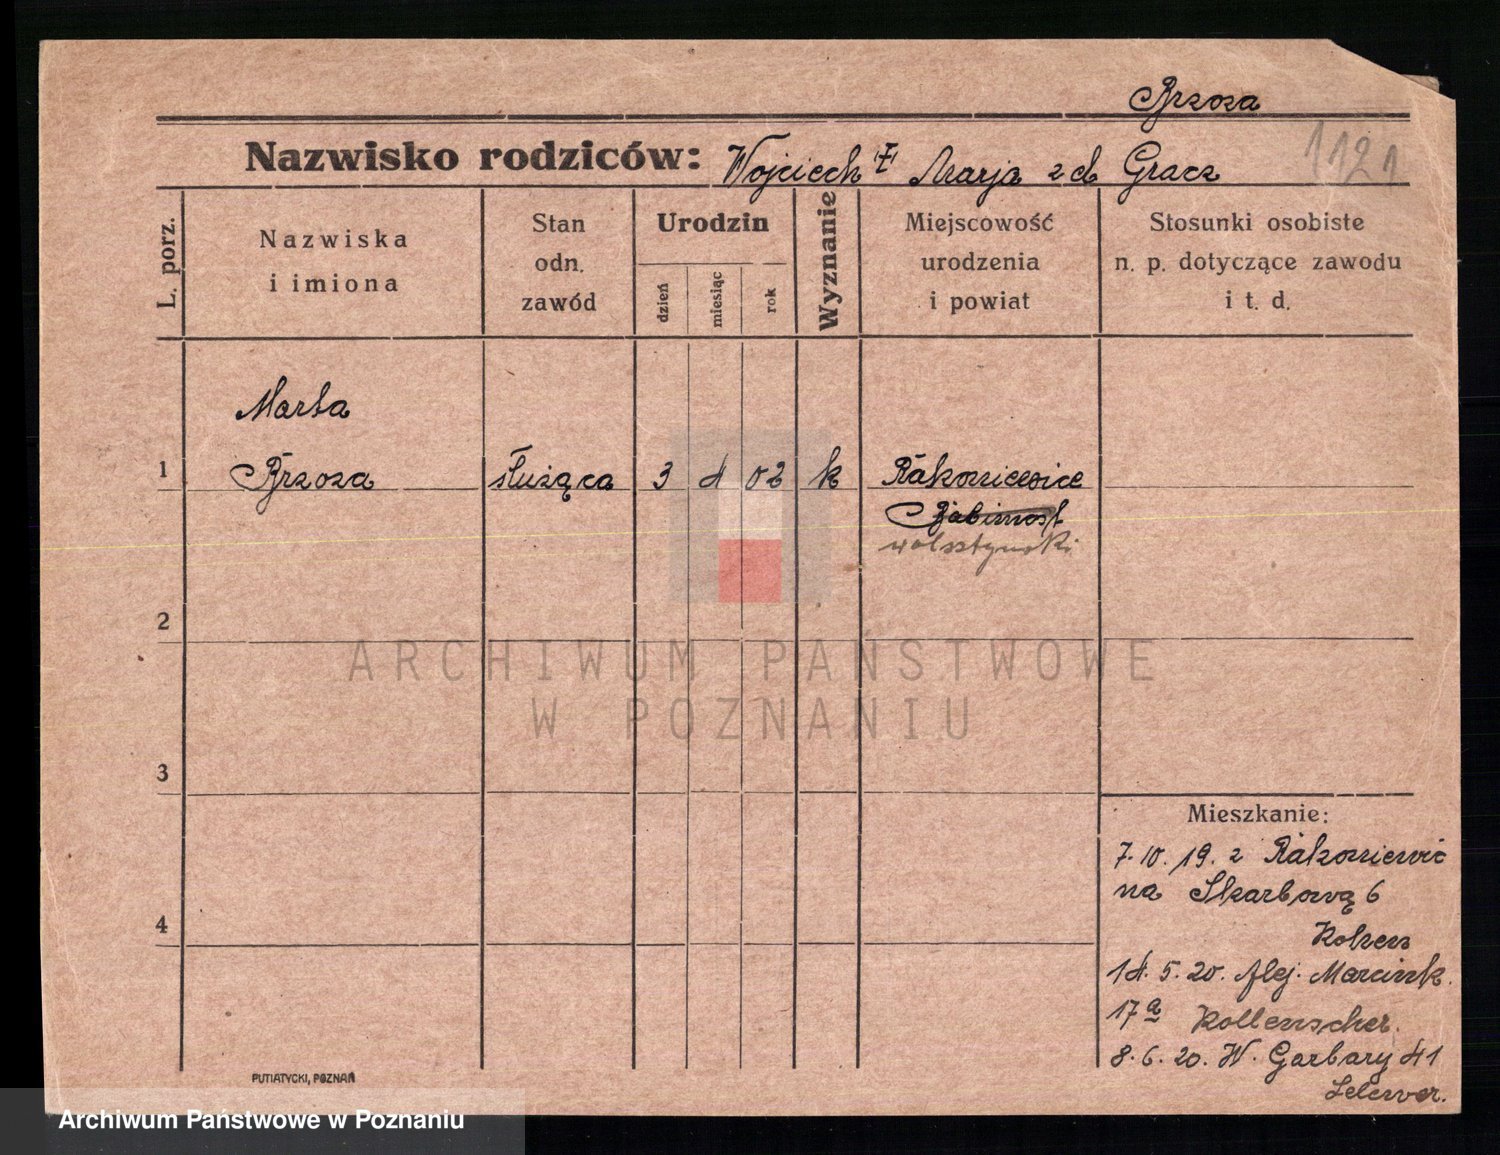 Brzoza
Nazwisko rodziców: Wojciech Marja z d Gracz
1121
L. porz.
Nazwiska
i imiona
Stan
odn.
zawód
Urodzin
dzień
miesiąc
rok
Wyznanie
Miejscowość
urodzenia
i powiat
Stosunki osobiste
n. p. dotyczące zawodu
i t. d.
Marta
1 Brzoza służąca 3 4 02 k Rakoniewice
Babimost
wolsztyński
2
ARCHIWUM PAŃSTWOWE
W POZNANIU
3
Mieszkanie:
7.10.19. z Rakoniewic
na Skarbową 6
4
14.5.20. Alej. Marcink.
17a Kollenscher.
8.6.20. W. Garbary 41
PUTIATYCKI, POZNAŃ
Archiwum Państwowe w Poznaniu